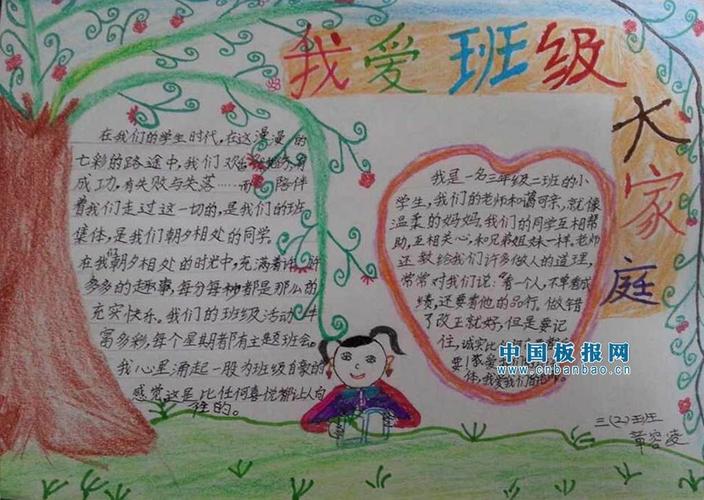 我爱班级
大家庭
在我们的学生时代,在这漫漫的
七彩的路途中,我们
成功,有失败与失落……而 陪伴
着我们走过这一切的,是我们的班
集体,是我们朝夕相处的同学
在我们朝夕相处的时光中,充满着许
多多的趣事,每分每秒都是那么的
充实快乐。我们的班级活动
富多彩,每个星期都有主题班会。
我心里涌起一股为班级自豪的
感觉这是比任何喜悦都让人向
往的。
我是一名三年级二班的小
学生,我们的老师和蔼可亲,就像
温柔的妈妈。我们的同学互相帮
助,互相关心,和兄弟姐妹一样。老师
还教给我们许多做人的道理,
常常对我们说:"看一个人,不单看成
绩,还要看他的品行。做错
了改正就好,但是要记
住,诚实比
要!
体,我爱我们的
中国板报网
www.cnbanbao.cn
三(2)班
黄容凌